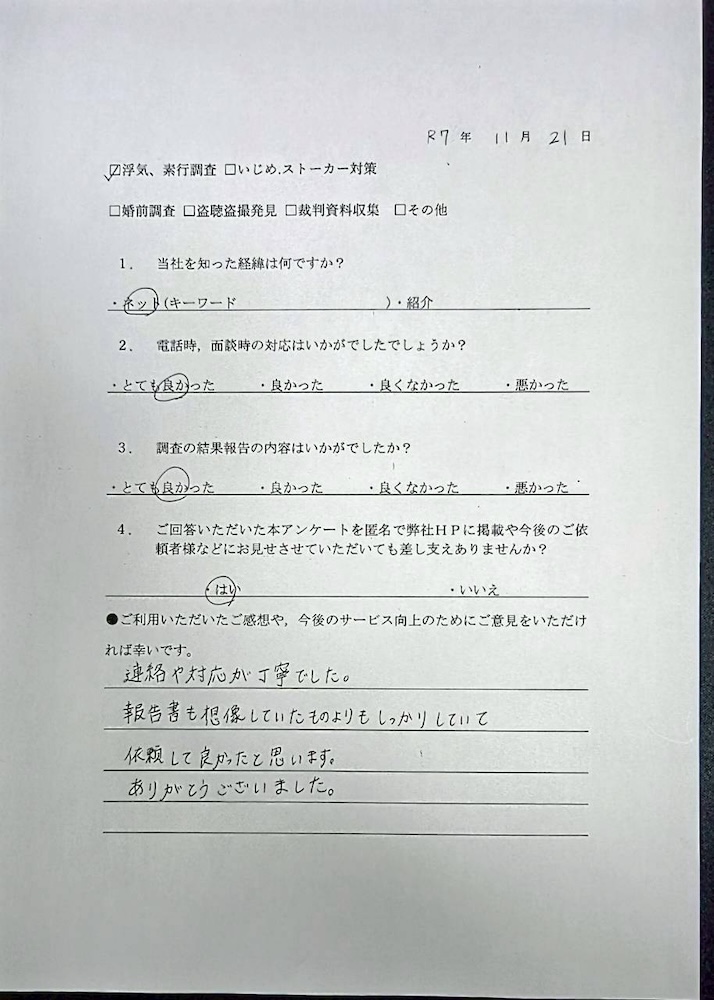 R7年 11月 21日
☑浮気、素行調査 □いじめ.ストーカー対策
□婚前調査 □盗聴盗撮発見 □裁判資料収集 □その他
1. 当社を知った経緯は何ですか？
・ネット(キーワード )・紹介
2. 電話時，面談時の対応はいかがでしたでしょうか？
・とても良かった ・良かった ・良くなかった ・悪かった
3. 調査の結果報告の内容はいかがでしたか？
・とても良かった ・良かった ・良くなかった ・悪かった
4. ご回答いただいた本アンケートを匿名で弊社ＨＰに掲載や今後のご依
頼者様などにお見せさせていただいても差し支えありませんか？
・はい ・いいえ
●ご利用いただいたご感想や，今後のサービス向上のためにご意見をいただけ
れば幸いです。
連絡や対応が丁寧でした。
報告書も想像していたものよりもしっかりしていて
依頼して良かったと思います。
ありがとうございました。